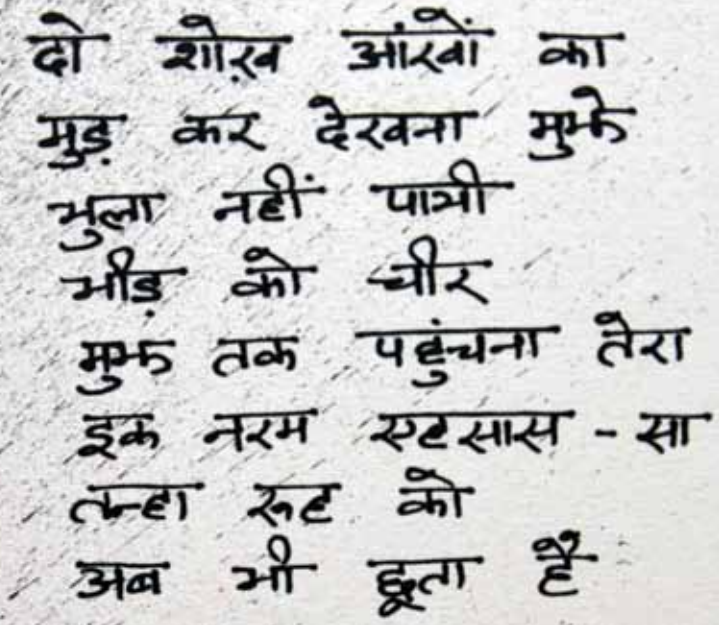 दो शोख़ आंखों का
मुड़ कर देखना मुझे
भुला नहीं पायी
भीड़ को चीर
मुझ तक पहुंचना तेरा
इक नरम एहसास - सा
तन्हा रूह को
अब भी छूता है